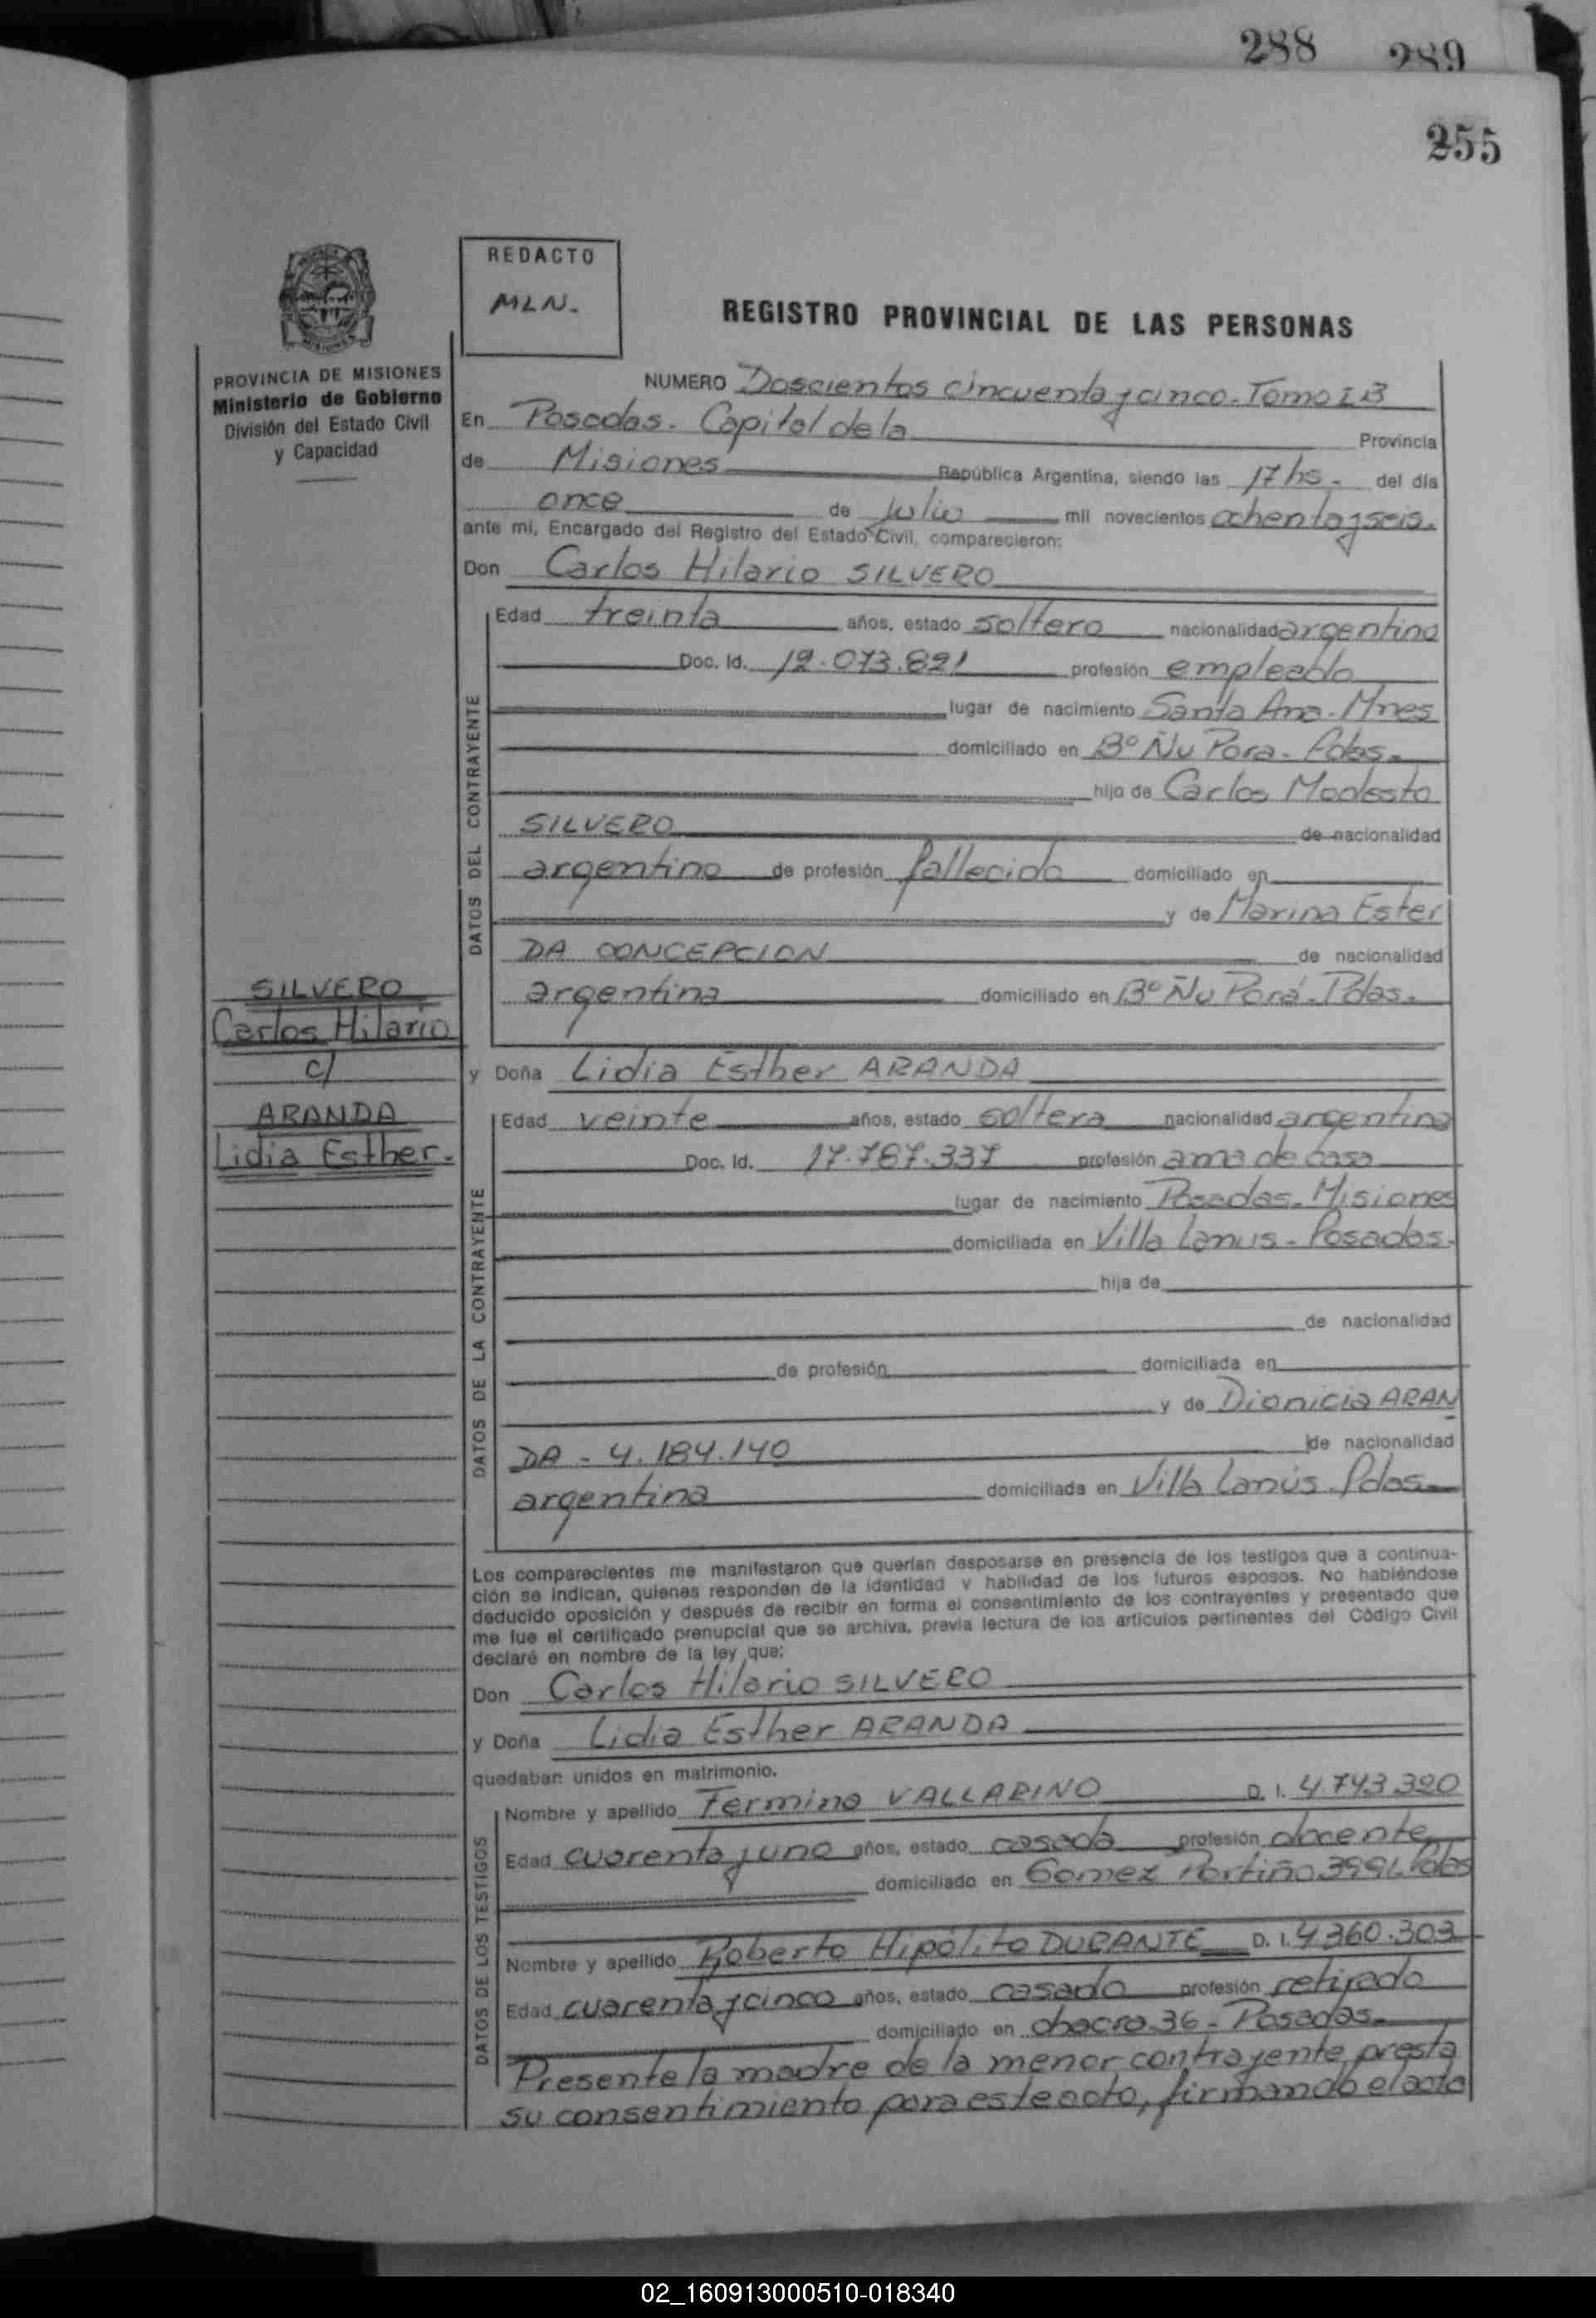 288 289
255
REDACTO
MLN.
REGISTRO PROVINCIAL DE LAS PERSONAS
PROVINCIA DE MISIONES
Ministerio de Gobierno
División del Estado Civil
y Capacidad
NUMERO Doscientos cincuenta y cinco. Tomo I B
En Posadas. Capital de la Provincia
de Misiones República Argentina, siendo las 17 hs. del día
once de Julio mil novecientos ochenta y seis.
ante mí, Encargado del Registro del Estado Civil, comparecieron:
Don Carlos Hilario SILVERO
DATOS DEL CONTRAYENTE
Edad treinta años, estado soltero nacionalidad argentino
Doc. Id. 12.073.821 profesión empleado
lugar de nacimiento Santa Ana. Mnes
domiciliado en B° Ñu Pora. Pdas.
hijo de Carlos Modesto
SILVERO de nacionalidad
argentino de profesión fallecido domiciliado en
y de Marina Ester
DA CONCEPCION de nacionalidad
argentina domiciliado en B° Ñu Porá. Pdas.
SILVERO
Carlos Hilario
c/
ARANDA
Lidia Esther.
y Doña Lidia Esther ARANDA
DATOS DE LA CONTRAYENTE
Edad veinte años, estado soltera nacionalidad argentina
Doc. Id. 17.787.337 profesión ama de casa
lugar de nacimiento Posadas. Misiones
domiciliada en Villa Lanus - Posadas.
hija de
de nacionalidad
de profesión domiciliada en
y de Dionicia ARAN
DA - 4.184.140 de nacionalidad
argentina domiciliada en Villa Lanús. Pdas.
Los comparecientes me manifestaron que querían desposarse en presencia de los testigos que a continua-
ción se indican, quienes responden de la identidad y habilidad de los futuros esposos. No habiéndose
deducido oposición y después de recibir en forma el consentimiento de los contrayentes y presentado que
me fue el certificado prenupcial que se archiva, previa lectura de los artículos pertinentes del Código Civil
declaré en nombre de la ley que:
Don Carlos Hilario SILVERO
y Doña Lidia Esther ARANDA
quedaban unidos en matrimonio.
DATOS DE LOS TESTIGOS
Nombre y apellido Fermina VALLARINO D. I. 4.743.320
Edad cuarenta y uno años, estado casada profesión docente
domiciliado en Gomez Portiño Pdas
Nombre y apellido Roberto Hipólito DURANTE D. I. 4.360.303
Edad cuarenta y cinco años, estado casado profesión retirado
domiciliado en chacra 36 - Posadas.
Presente la madre de la menor contrayente, presta
su consentimiento para este acto, firmando el acta
02_160913000510-018340